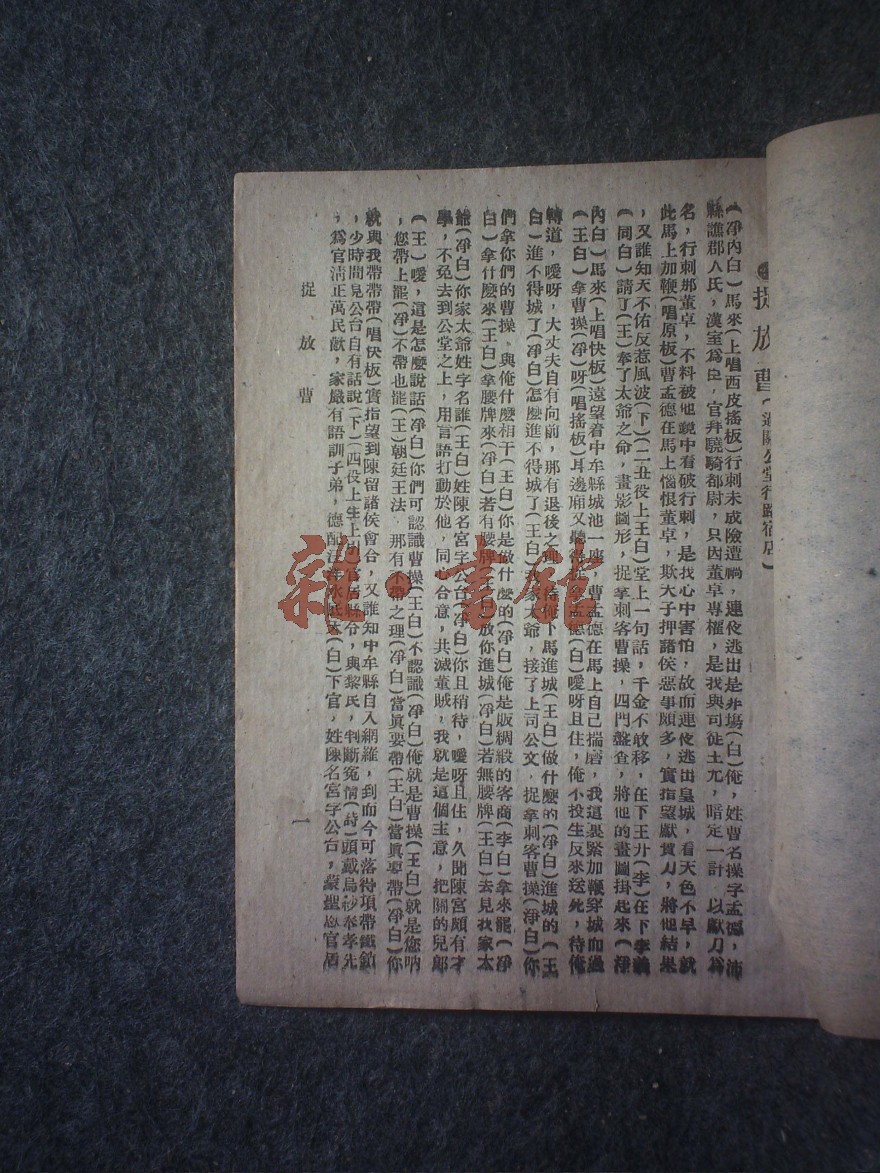 捉放曹(過關公堂行路宿店)
(淨內白)馬來(上唱西皮搖板)行刺未成險遭禍,連夜逃出是非塲(白)俺,姓曹名操字孟德,沛
縣譙郡人氏,漢室爲臣,官拜驍騎都尉,只因董卓專權,是我與司徒王允,暗定一計,以獻刀爲
名,行刺那董卓,不料被他鏡中看破行刺,是我心中害怕,故而連夜逃出皇城,看天色不早,就
此馬上加鞭(唱原板)曹孟德在馬上惱恨董卓,欺天子押諸侯惡事頗多,實指望獻寶刀,將他結果
,又誰知天不佑反惹風波(下)(二丑役上王白)堂上一句話,千金不敢移,在下王升(李)在下李義
(同白)請了(王)奉了太爺之命,畫影圖形,捉拿刺客曹操,四門盤查,將他的畫圖掛起來(淨
內白)馬來(上唱快板)遠望着中牟縣城池一座,曹孟德在馬上自己揣磨,我這裏緊加鞭穿城而過
(王白)拿曹操(淨)呀(唱搖板)耳邊廂又聽得捉拿孟德(白)噯呀且住,俺不投生反來送死,待俺
轉道,噯呀,大丈夫自有向前,那有退後之理,待俺下馬進城(王白)做什麼的(淨白)進城的(王
白)進不得城了(淨白)怎麽進不得城了(王白)我家太爺,接了上司公文,捉拿刺客曹操(淨白)你
們拿你們的曹操、與俺什麽相干(王白)你是做什麽的(淨白)俺是販綢緞的客商(李白)拿來罷(淨
白)拿什麽來(王白)拿腰牌來(淨白)若有腰牌(王白)放你進城(淨白)若無腰牌(王白)去見我家太
爺(淨白)你家太爺姓字名誰(王白)姓陳名宮字公台(淨白)你且稍待,噯呀且住,久聞陳宮頗有才
學,不免去到公堂之上,用言語打動於他,同心合意,共滅董賊,我就是這個主意,把關的兒郎
(王)噯,這是怎麽說話(淨白)你們可認識曹操(王白)不認識(淨白)俺就是曹操(王白)就是您吶
,您帶上罷(淨)不帶也罷(王)朝廷王法,那有不帶之理(淨白)當眞要帶(王白)當眞要帶(淨白)你
就與我帶帶帶(唱快板)實指望到陳留諸侯會合,又誰知中牟縣自入網羅,到而今可落得項帶鐵鎖
,少時間見公台自有話說(下)(四役上生上引)官居縣令,與黎民,判斷冤情(詩)頭戴烏紗奉孝先
,爲官淸正萬民歡,家嚴有語訓子弟,德配汪洋水底天(白)下官,姓陳名宮字公台,蒙聖恩官居
捉放曹
一
雜·書館